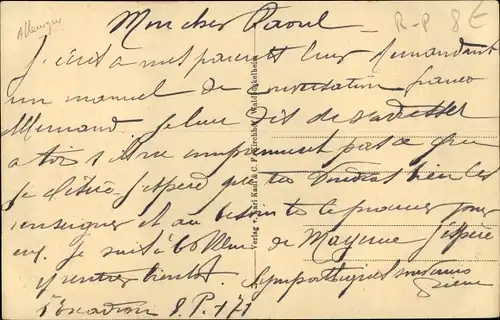 Allemagne
R-P 8€
Mon cher Raoul
J'écris à mes parents leur demandant
un manuel de Conversation franco
Allemand. Je leur dis de s'adresser
à toi s'ils ne comprennent pas ce que
je désire. J'espère que tu voudras bien les
renseigner et au besoin te le procurer pour
eux. Je suis à 60 Klm de Mayence j'espère
y rentrer bientôt. Sympathiques
Escadron S.P. 171
Verlag v. Karl Rauf & C. F. Kirchhof, Waldböckelheim